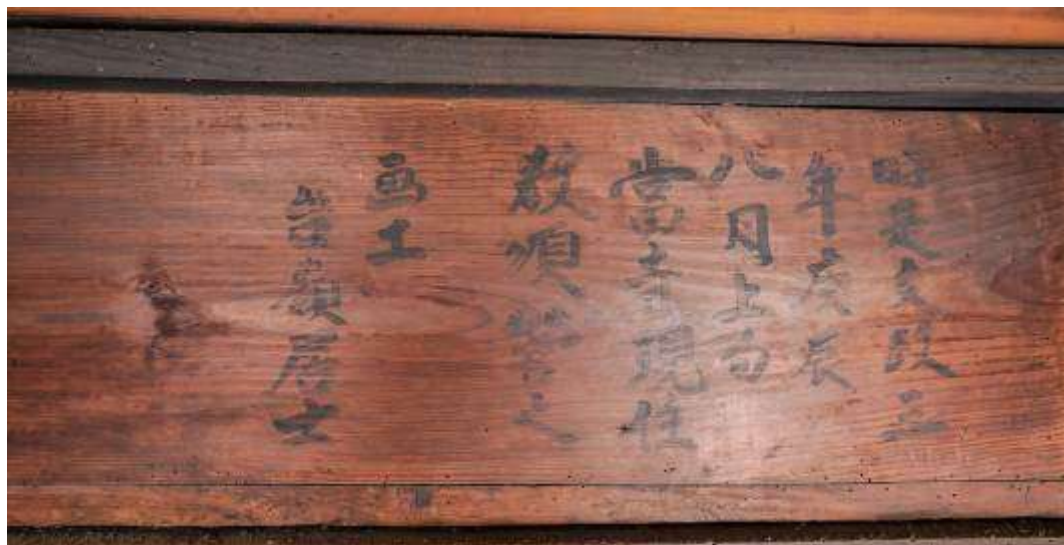 時是文政三
年庚辰
八月上旬
當寺現住
教順營之
画工
嶺居士